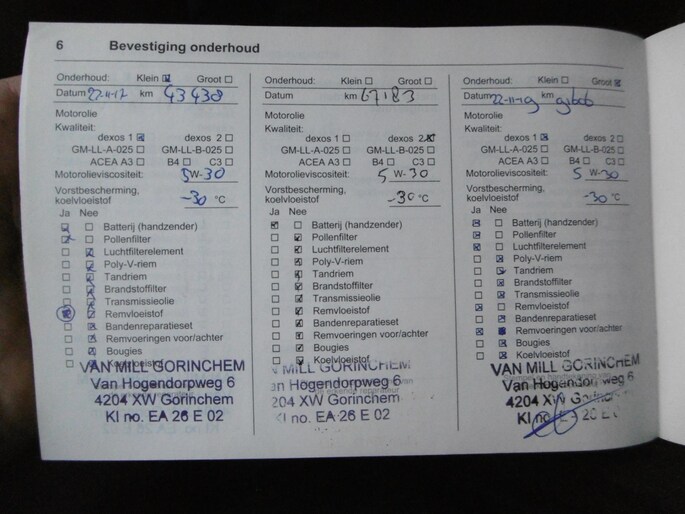 6 Bevestiging onderhoud
Onderhoud: Klein Groot
Datum 22-11-17 km 43438
Motorolie
Kwaliteit:
dexos 1 dexos 2
GM-LL-A-025 GM-LL-B-025
ACEA A3 B4 C3
Motorolieviscositeit: 5W-30
Vorstbescherming,
koelvloeistof -30 °C
Ja Nee
Batterij (handzender)
Pollenfilter
Luchtfilterelement
Poly-V-riem
Tandriem
Brandstoffilter
Transmissieolie
Remvloeistof
Bandenreparatieset
Remvoeringen voor/achter
Bougies
Koelvloeistof
VAN MILL GORINCHEM
Van Hogendorpweg 6
4204 XW Gorinchem
KI no. EA 26 E 02
Onderhoud: Klein Groot
Datum km 67183
Motorolie
Kwaliteit:
dexos 1 dexos 2
GM-LL-A-025 GM-LL-B-025
ACEA A3 B4 C3
Motorolieviscositeit: 5 W-30
Vorstbescherming,
koelvloeistof -30 °C
Ja Nee
Batterij (handzender)
Pollenfilter
Luchtfilterelement
Poly-V-riem
Tandriem
Brandstoffilter
Transmissieolie
Remvloeistof
Bandenreparatieset
Remvoeringen voor/achter
Bougies
Koelvloeistof
MILL GORINCHEM
Hogendorpweg 6
XW Gorinchem
KI no. EA 26 E 02
Onderhoud: Klein Groot
Datum 22-11-19 km
Motorolie
Kwaliteit:
dexos 1 dexos 2
GM-LL-A-025 GM-LL-B-025
ACEA A3 B4 C3
Motorolieviscositeit: 5 W-30
Vorstbescherming,
koelvloeistof -30 °C
Ja Nee
Batterij (handzender)
Pollenfilter
Luchtfilterelement
Poly-V-riem
Tandriem
Brandstoffilter
Transmissieolie
Remvloeistof
Bandenreparatieset
Remvoeringen voor/achter
Bougies
Koelvloeistof
VAN MILL GORINCHEM
Van Hogendorpweg 6
4204 XW
KI no.